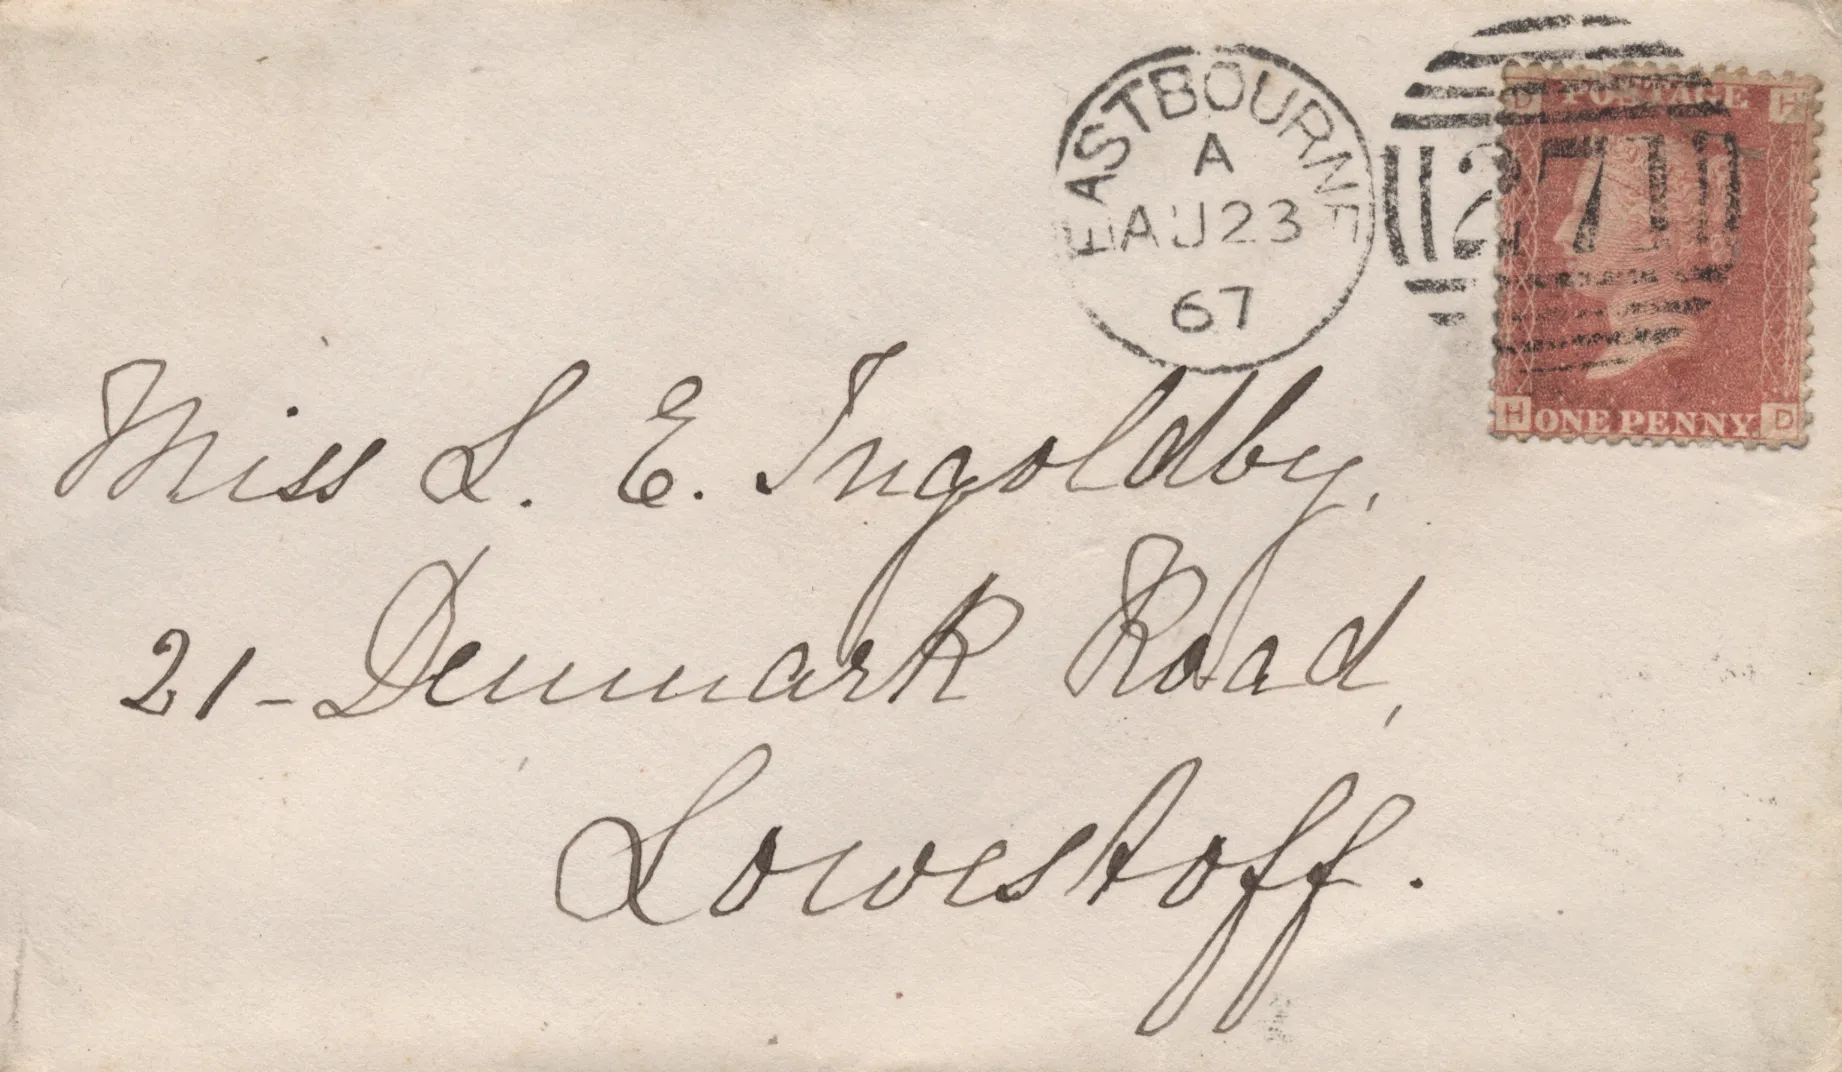 EASTBOURNE
A
AU23
67
271
D POSTAGE H
H ONE PENNY D
Miss L. E. Ingoldby,
21 - Denmark Road,
Lowestoff.